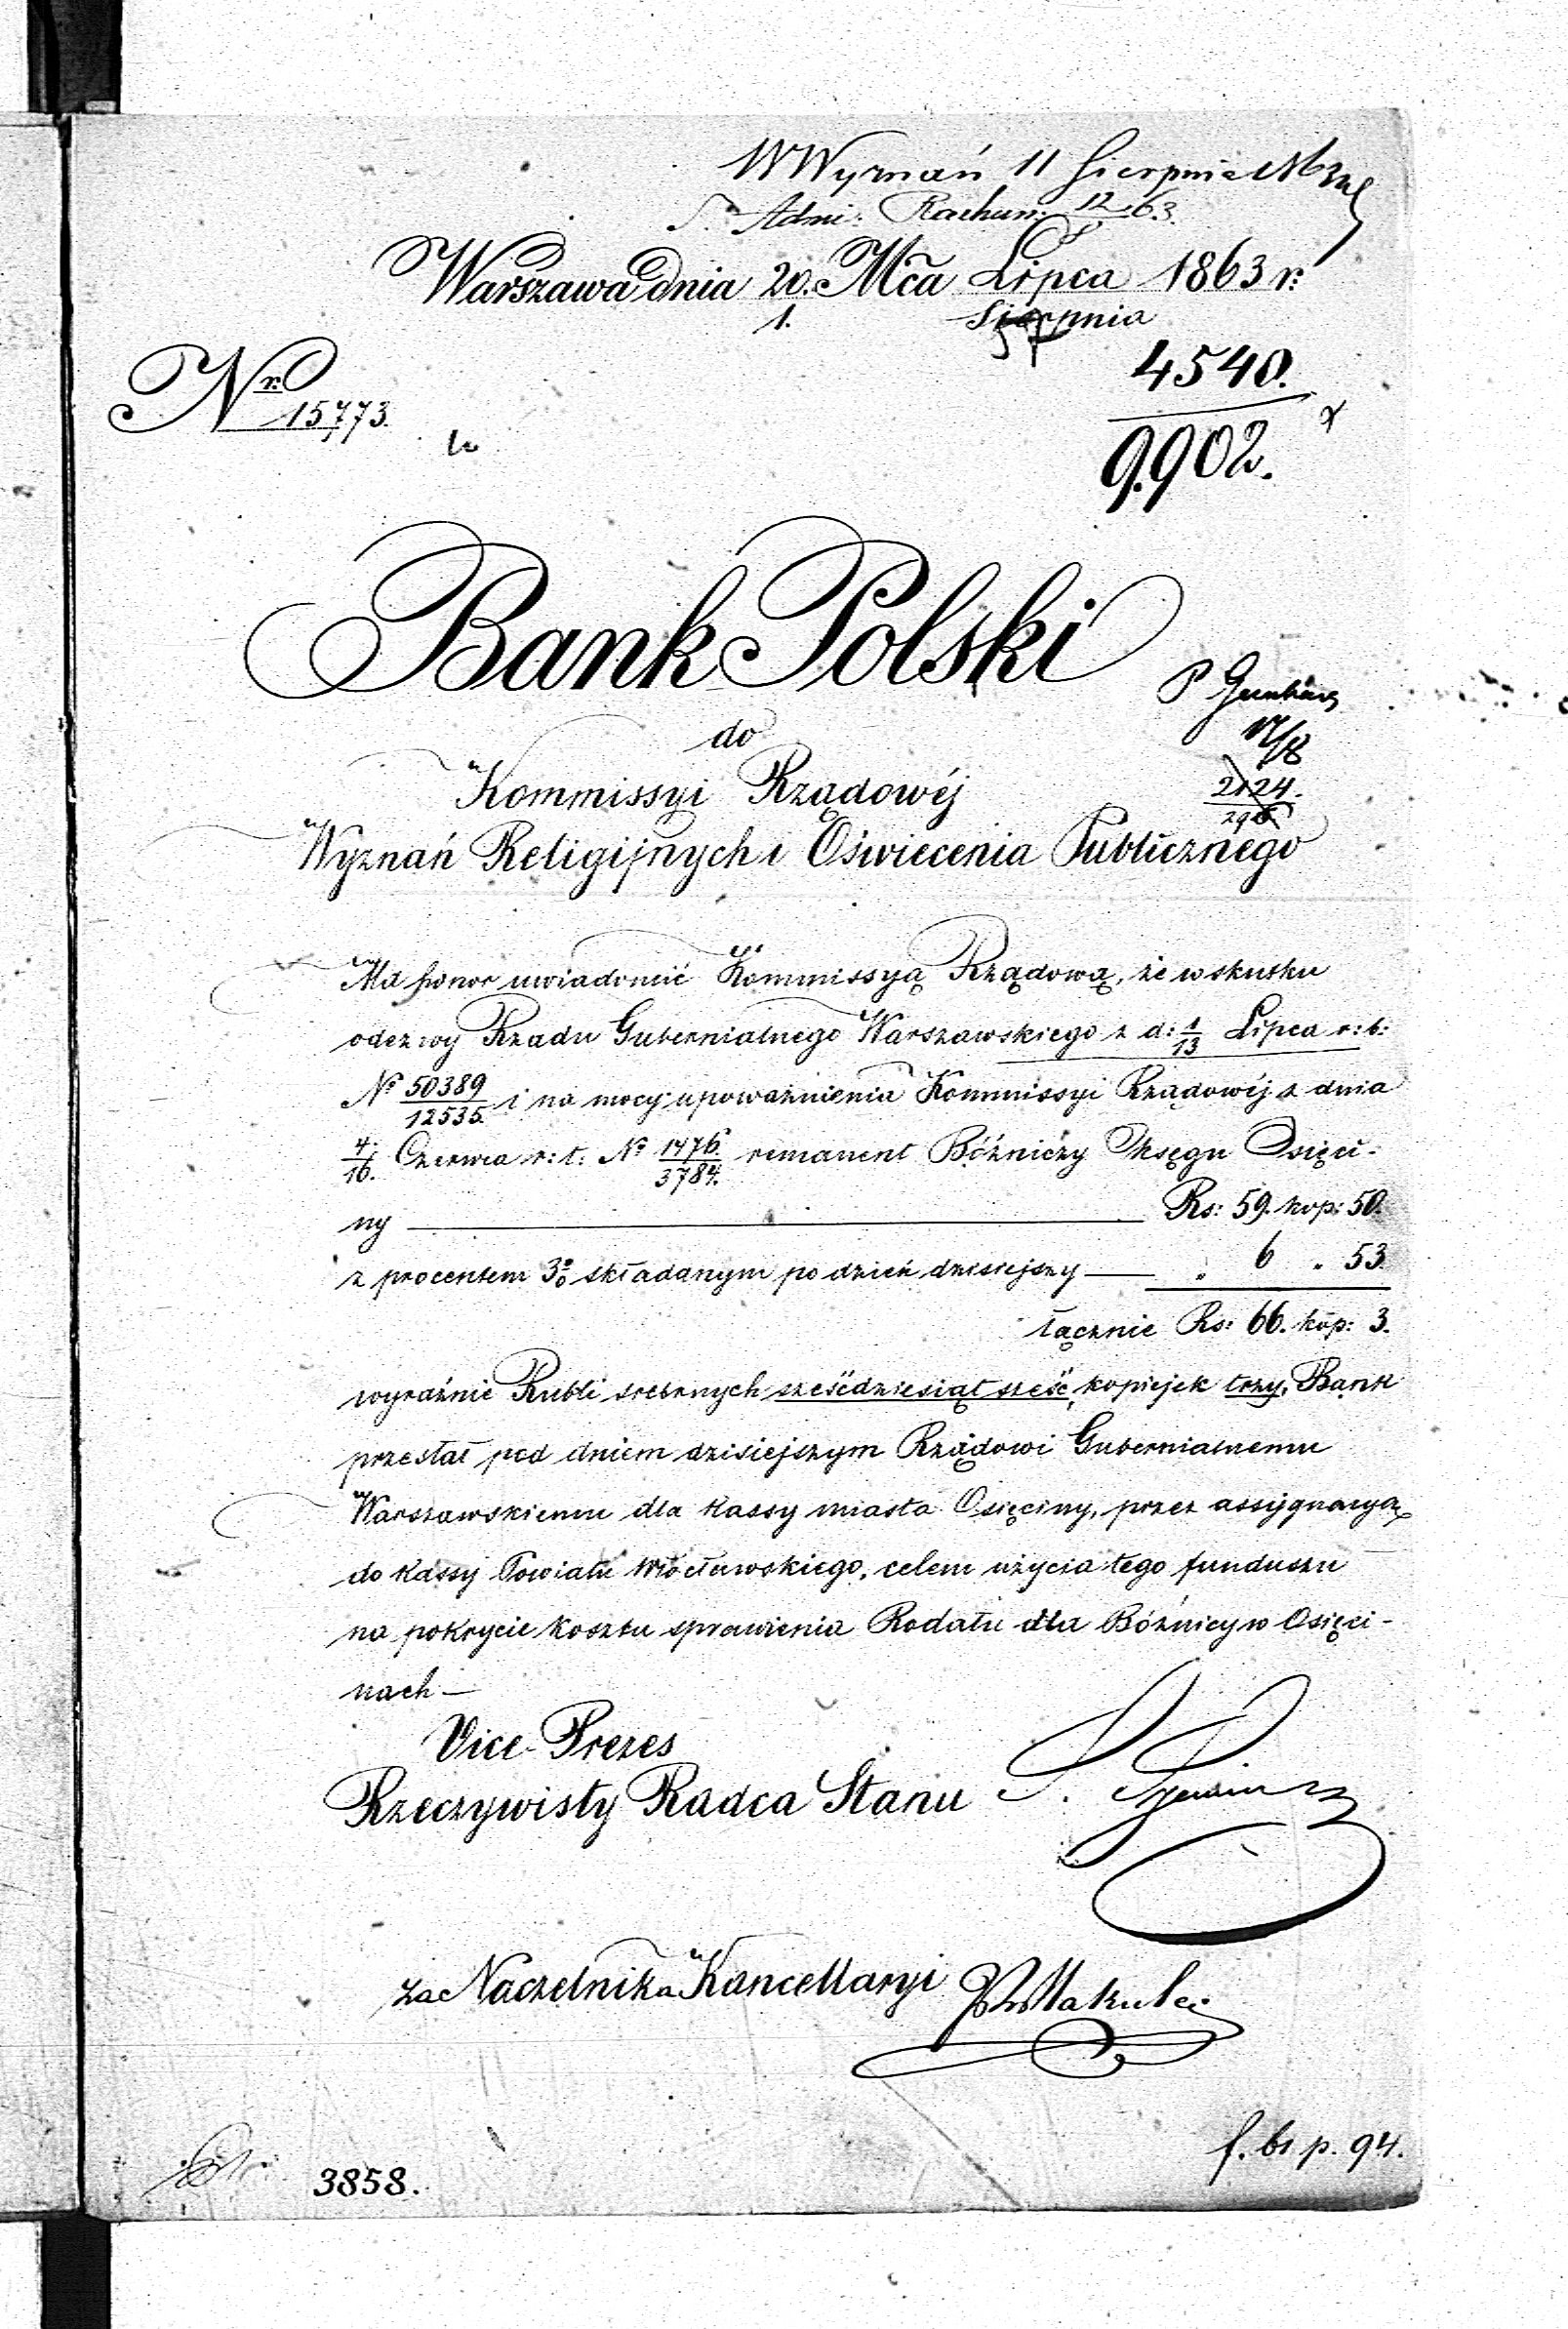 WWyznań 11 Sierpnia
Adni: Rachun: 12 63
Warszawa dnia 20. Mca Lipca 1863 r:
1. Sierpnia
4540.
Nr. 15,773.
9902.
Bank Polski
do
17/8
Kommissyi Rządowéj
2124.
Wyznań Religijnych i Oświecenia Publicznego
Ma honor uwiadomić Kommissyą Rządową, że w skutku
odezwy Rządu Gubernialnego Warszawskiego z d: 1/13 Lipca r: b:
No 50389/12535. i na mocy upoważnienia Kommissyi Rządowéj z dnia
4./16. Czerwca r: t: No 1476./3784. remanent Bóżniczy Okręgu Osięci-
ny — Rs: 59. kop: 50.
z procentem 3% składanym po dzień dzisiejszy — „ 6 „ 53
łącznie Rs: 66. kop: 3.
wyraźnie Rubli srebrnych sześćdziesiąt sześć, kopiejek trzy, Bank
przesłał pod dniem dzisiejszym Rządowi Gubernialnemu
Warszawskiemu dla Kassy miasta Osięciny, przez assygnacyą
do Kassy Powiatu Włocławskiego, celem użycia tego funduszu
na pokrycie kosztu sprawienia Rodału dla Bóżnicy w Osięci-
nach —
Vice-Prezes
Rzeczywisty Radca Stanu
za Naczelnika Kancellaryi
3858.
f. 61 p. 94.